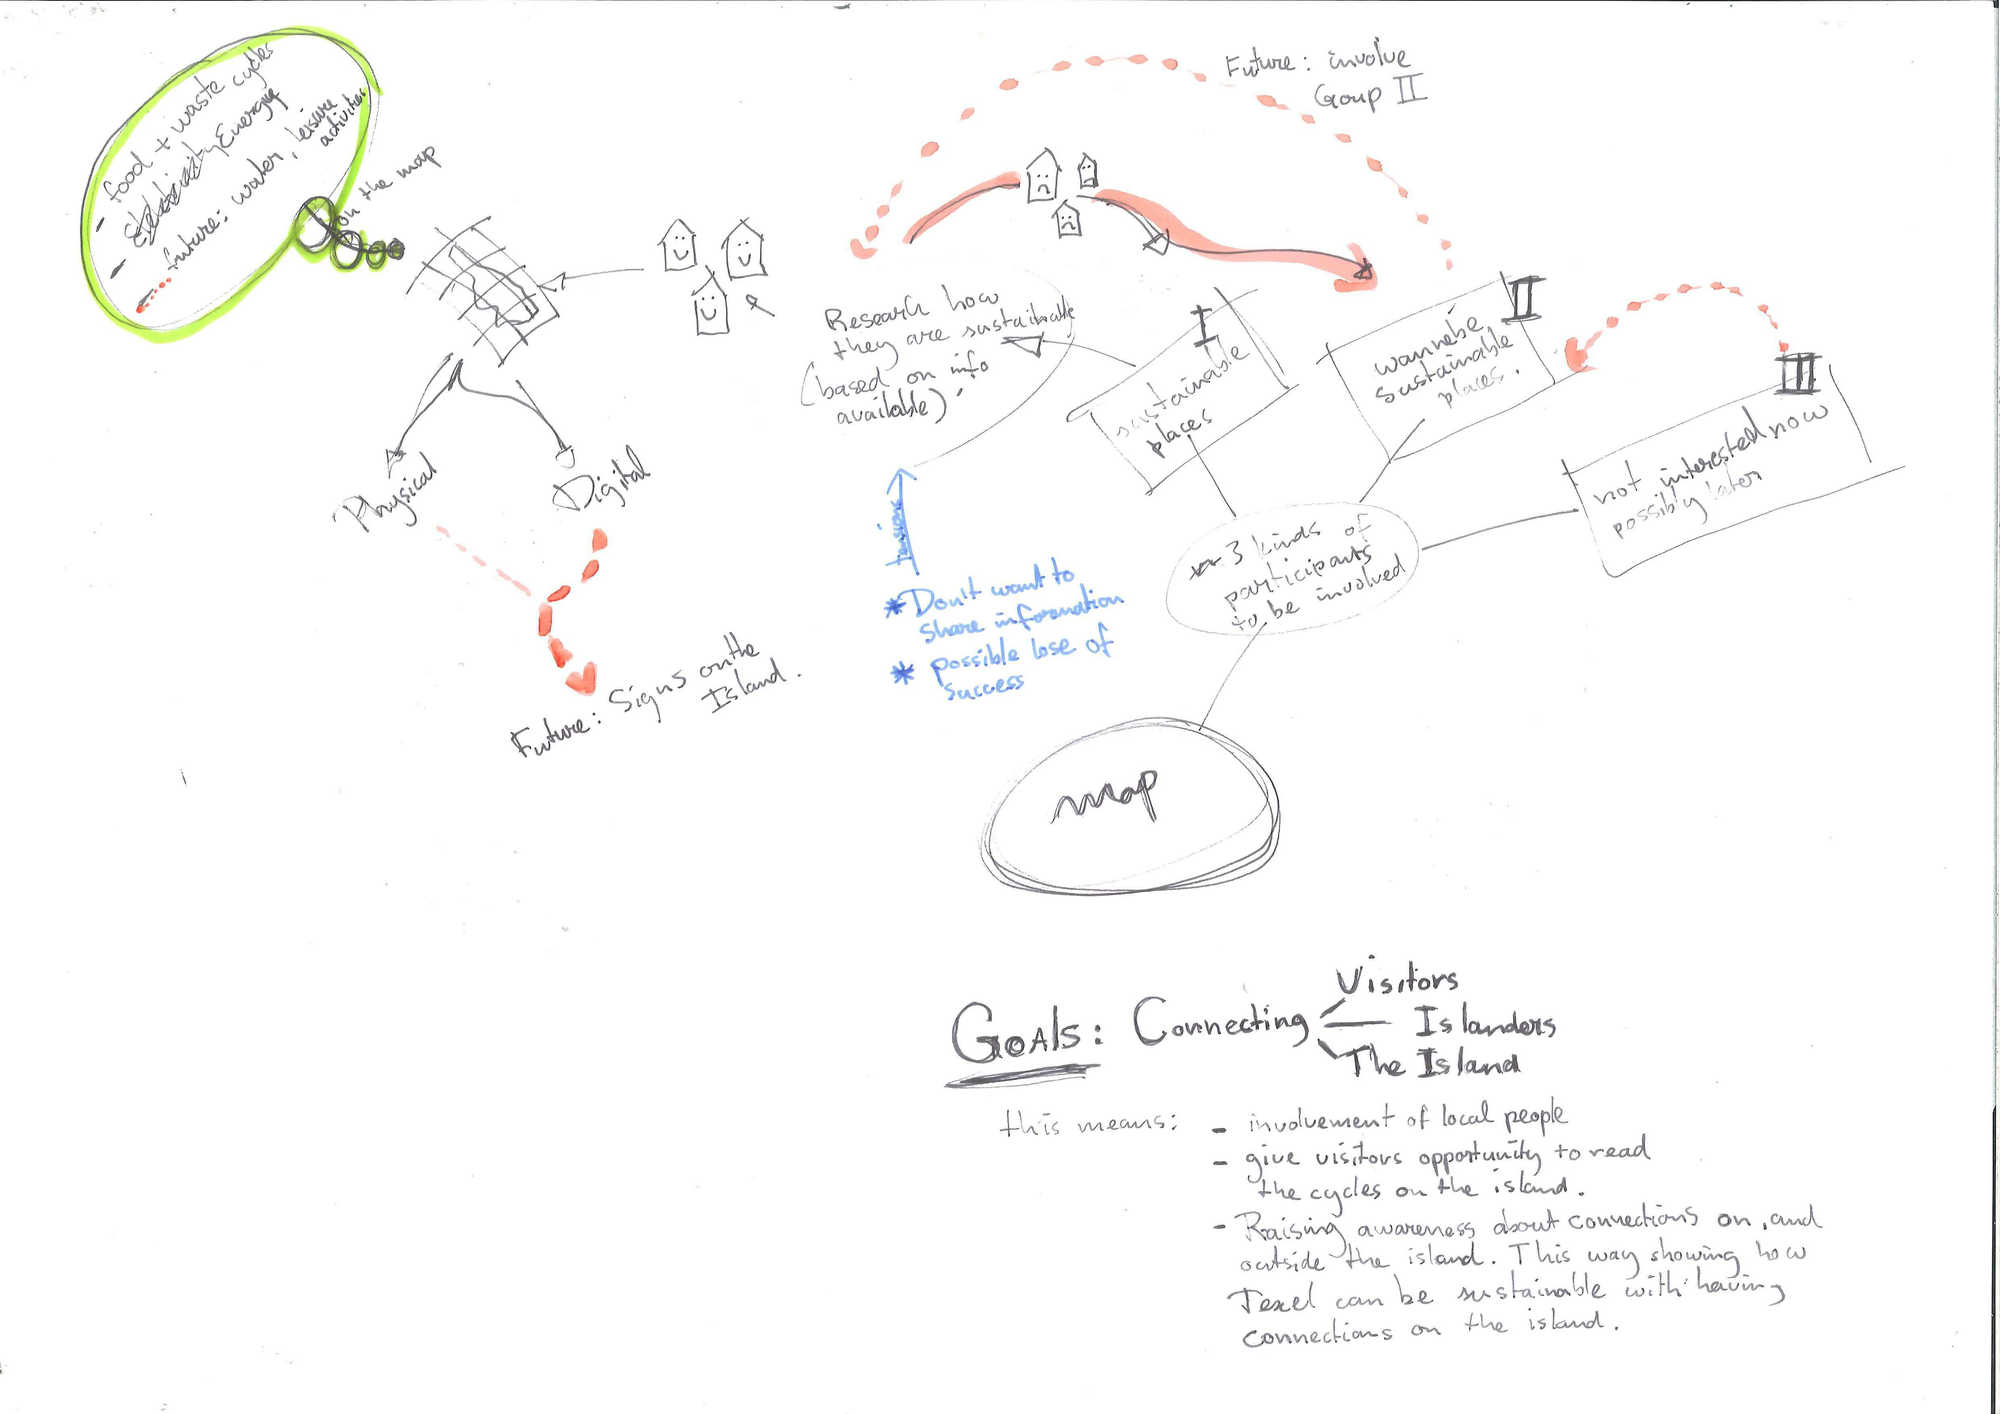 - food + waste cycles
- Energie
- future: water, leisure
activities
on the map
Physical
Digital
Future: Signs on the
Island.
Future: involve
Group II
Research how
they are sustainable
(based on info
available)
I
sustainable
places
II
wannebe
sustainable
places.
III
not interested now
possibly later
3 kinds of
participants
to be involved
tensions
* Don't want to
share information
* possible lose of
success
map
GOALS: Connecting
Visitors
Islanders
The Island
this means:
- involvement of local people
- give visitors opportunity to read
the cycles on the island.
- Raising awareness about connections on, and
outside the island. This way showing how
Texel can be sustainable with having
connections on the island.